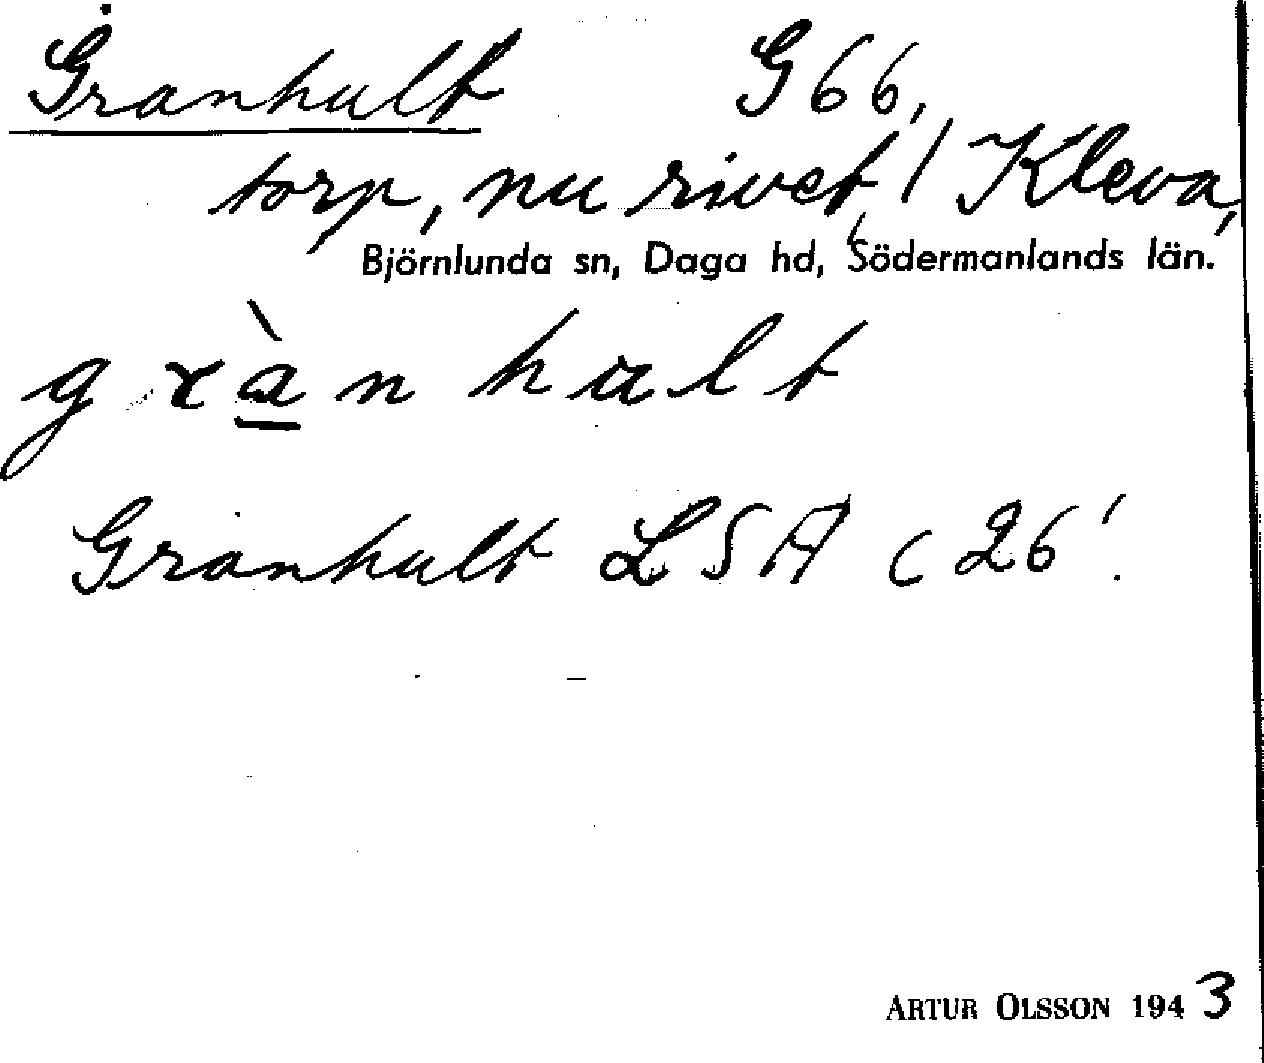 Granhult G 66,
torp, nu rivet, / Kleva,
Björnlunda sn, Daga hd, Södermanlands län.
g r à n h u l t
Granhult LSA c 26'.
ARTUR OLSSON 1943